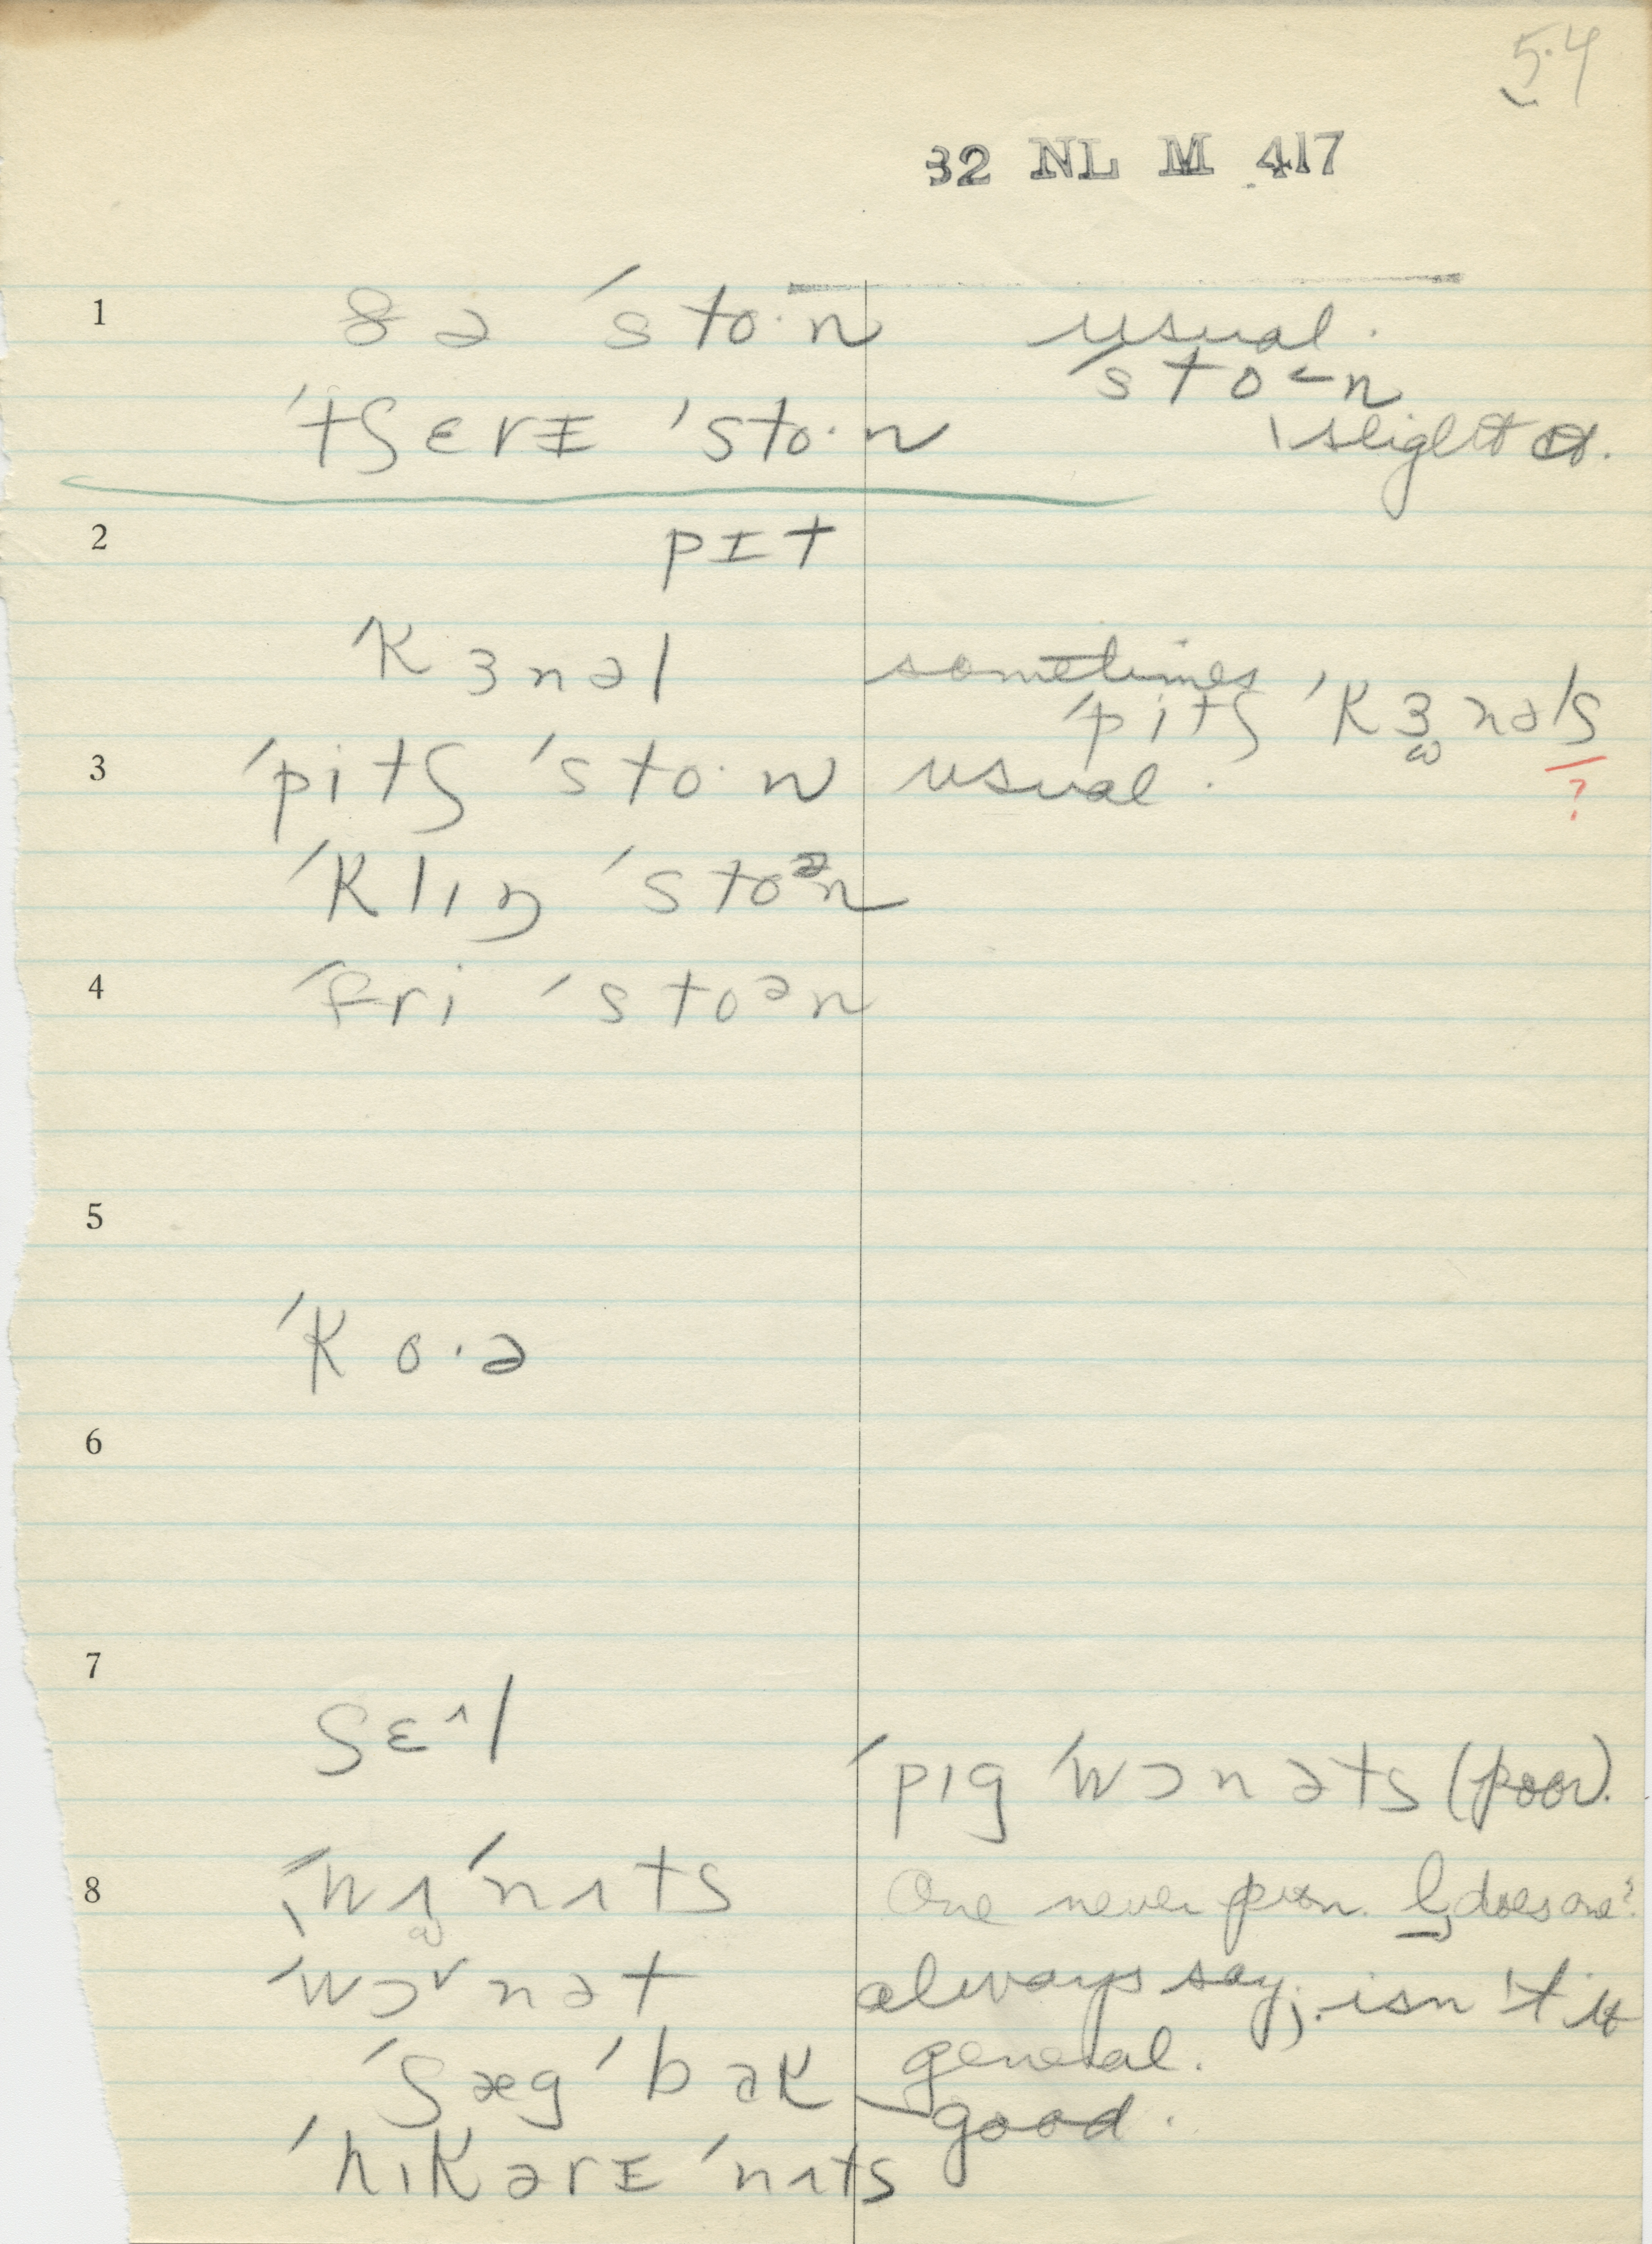 54
32 NL M 417
1 ðə ˈsto·n usual.
ˈsto˂n
ˈtʃɛrɪ ˈsto·n slight
2 pɪt
ˈkɜnəl sometimes
ˈpitʃ ˈkɜnəlʃ
?
3 ˈpitʃ ˈsto·n usual.
ˈklɪŋ ˈstoᵊn
4 ˈfri ˈstoᵊn
5
ˈko·ə
6
7
ʃɛ^l
ˈpɪg ˈwɔnəts (poor).
8 ˈwʌˈnʌts One never pron. does one?
ˈwɔ˅nət always say, isn't it
ˈʃægˈbək general.
good.
ˈhɪkərɪ ˈnʌts